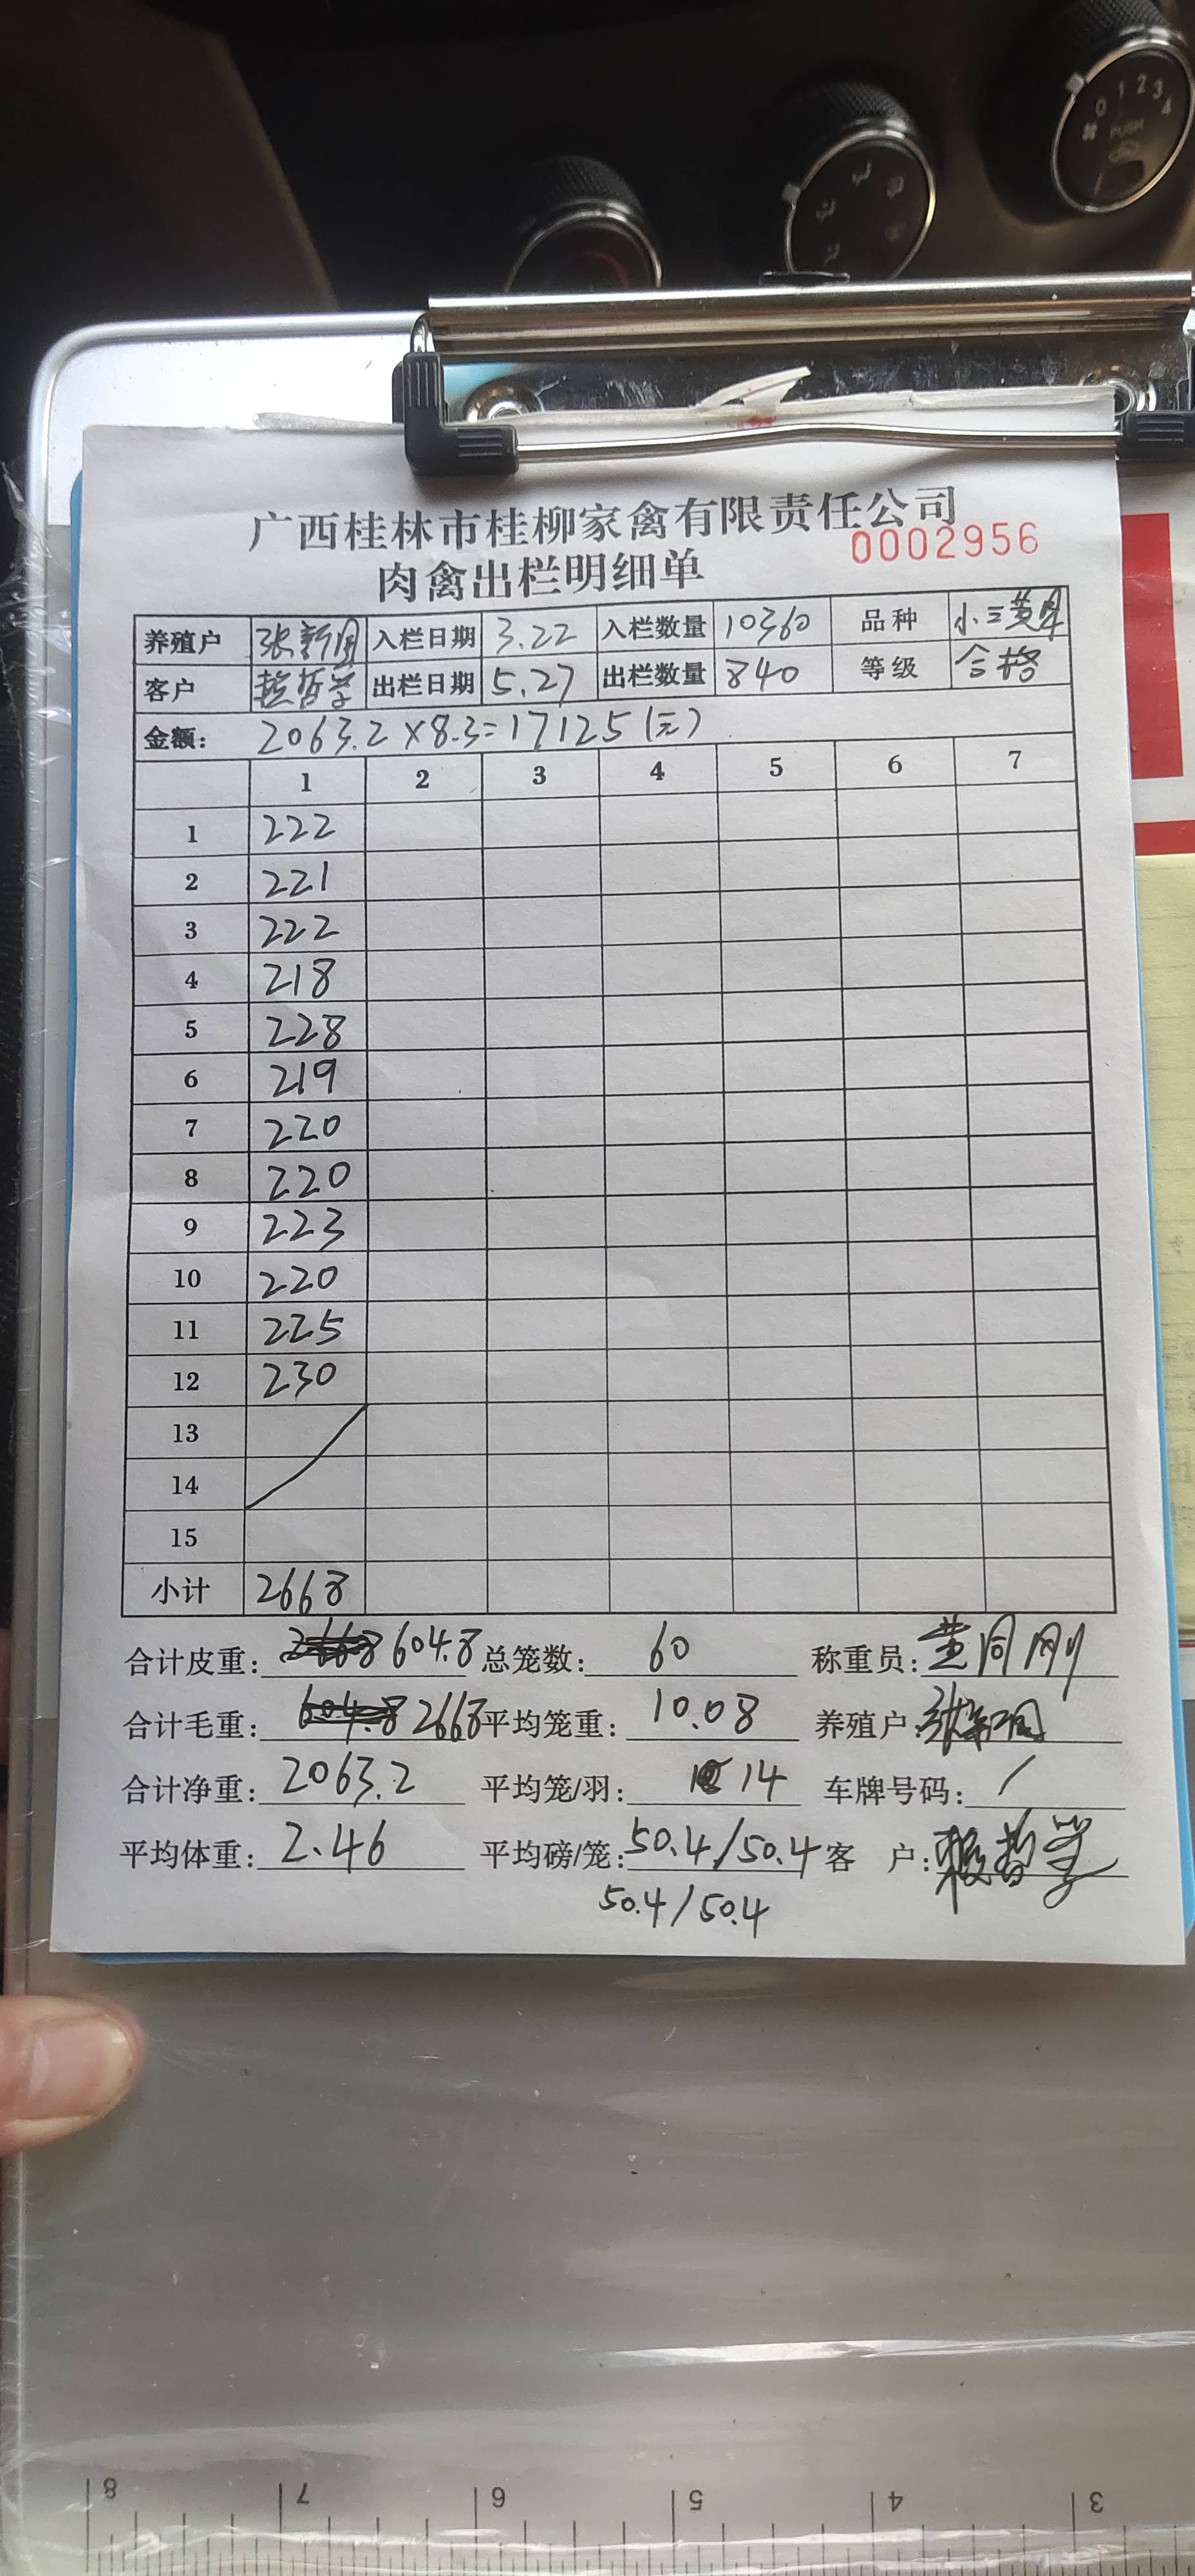 0 1 2 3 4
PUSH
广西桂林市桂柳家禽有限责任公司
0002956
肉禽出栏明细单
养殖户 张新国 入栏日期 3.22 入栏数量 10360 品种 小三黄
客户 哲学 出栏日期 5.27 出栏数量 840 等级 合格
金额: 2063.2×8.3=17125(元)
1 2 3 4 5 6 7
1 222
2 221
3 222
4 218
5 228
6 219
7 220
8 220
9 223
10 220
11 225
12 230
13
14
15
小计 2668
合计皮重: 604.8 总笼数: 60 称重员: 黄同刚
合计毛重: 2668 平均笼重: 10.08 养殖户:
合计净重: 2063.2 平均笼/羽: 14 车牌号码: /
平均体重: 2.46 平均磅/笼: 50.4/50.4 客 户:
50.4/50.4
8 7 6 5 4 3